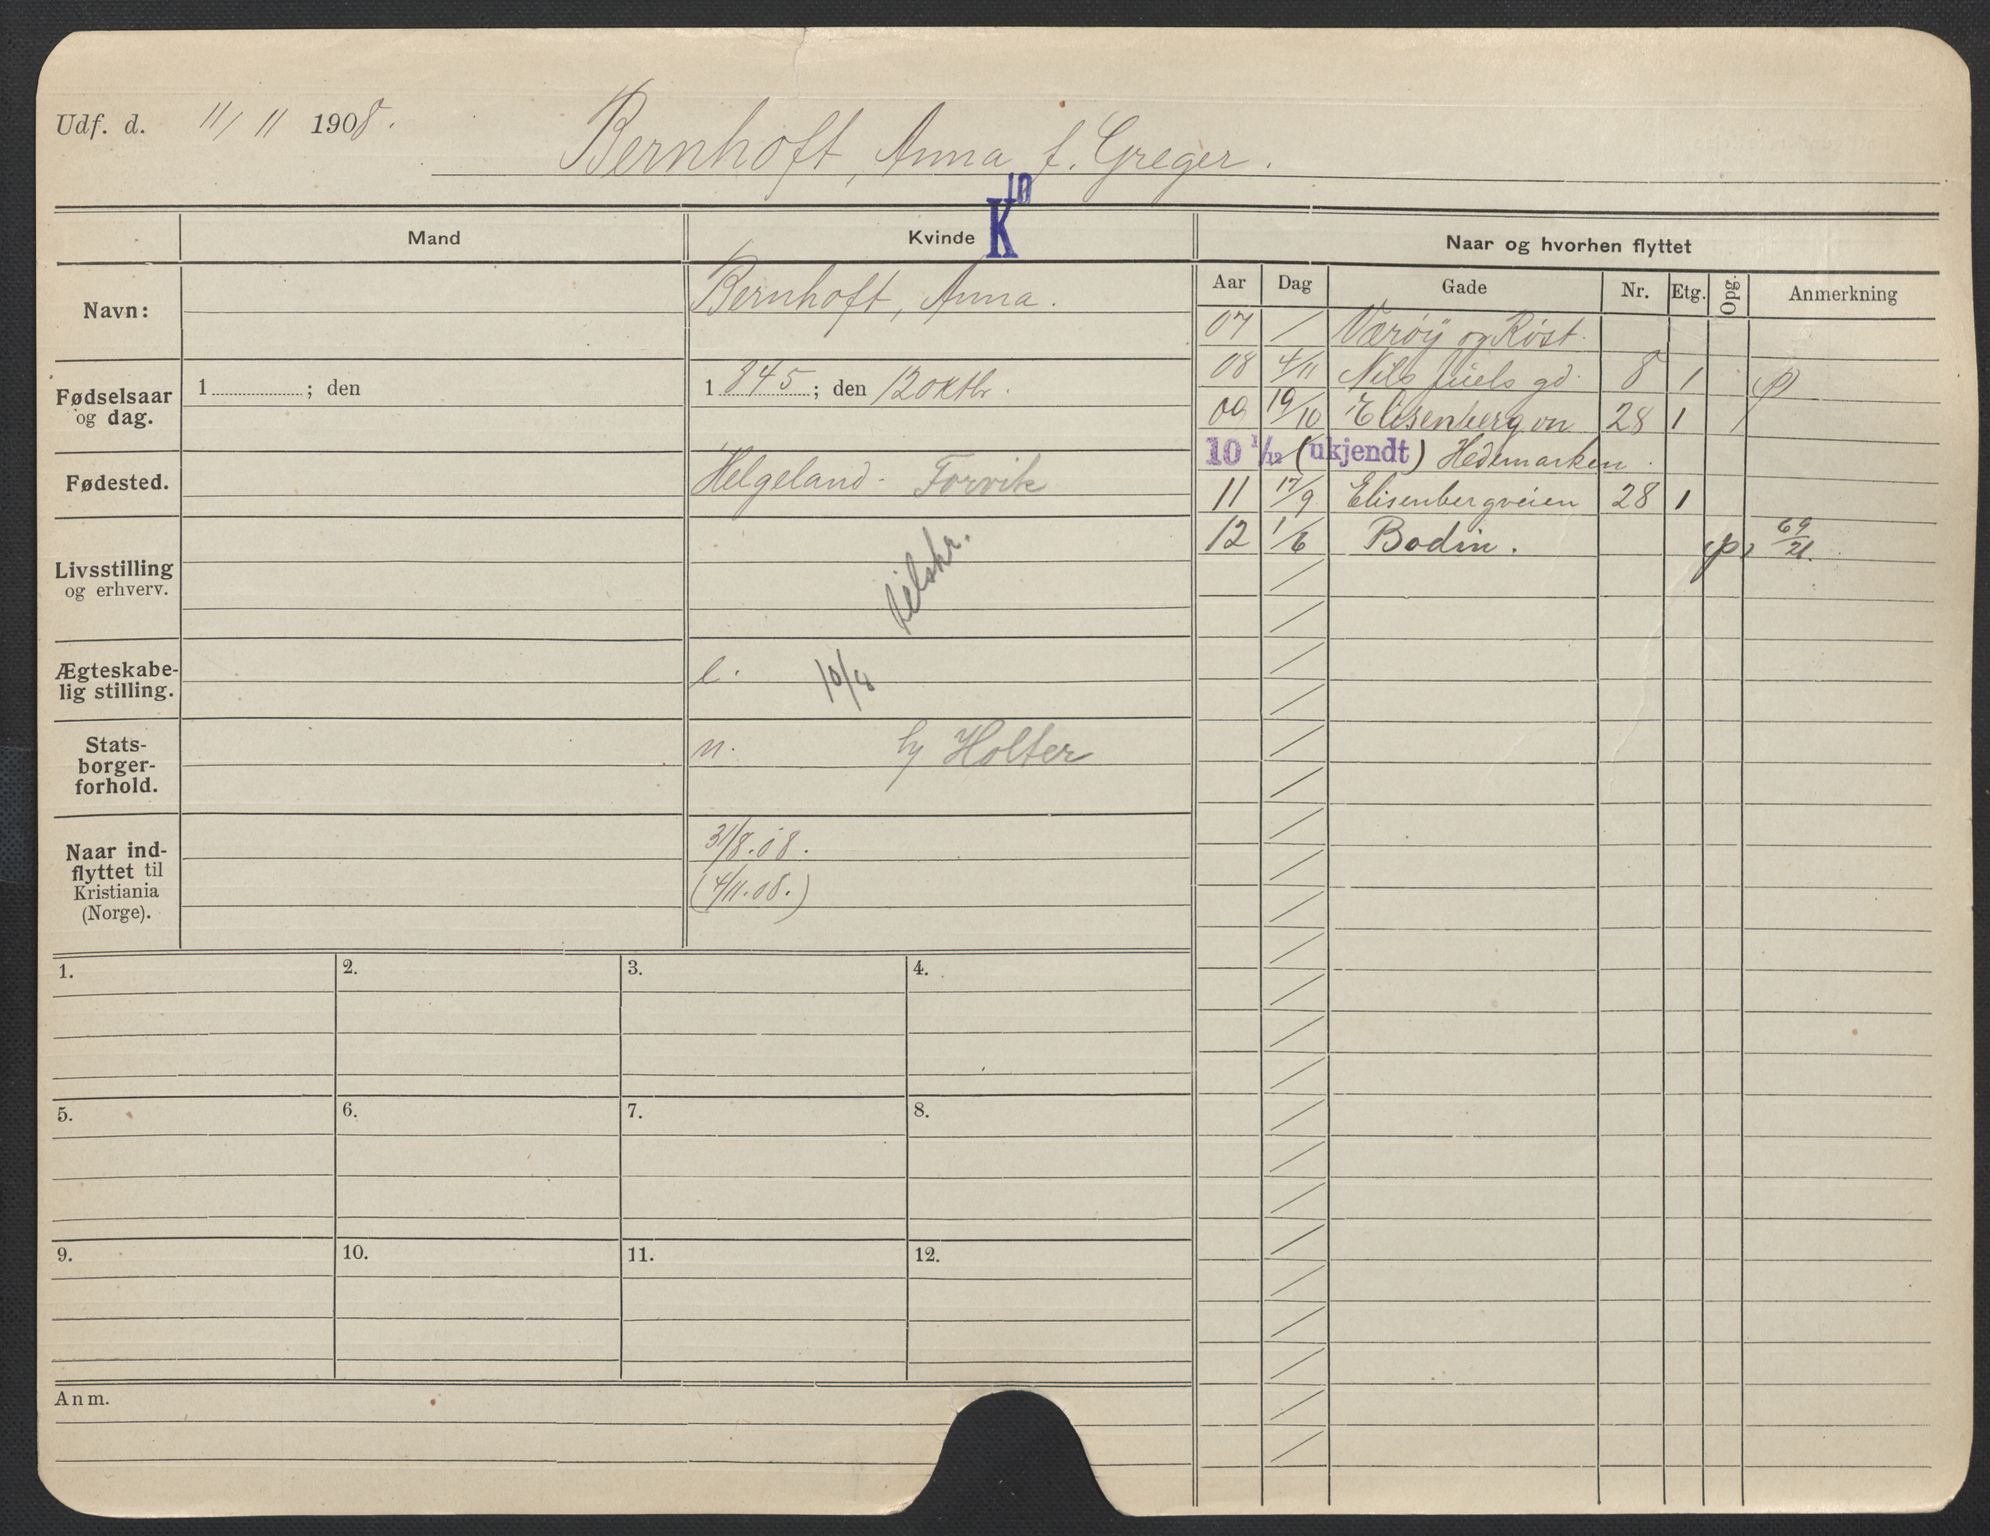 Udf. d. 11/11 1908.
Bernhoft, Anna f. Greger.
10
K
Mand
Kvinde
Naar og hvorhen flyttet
Aar Dag Gade Nr. Etg. Opg. Anmerkning
Navn:
Bernhoft, Anna.
Fødselsaar
og dag.
1 ; den
1 845 ; den 12 oktbr.
Fødested.
Helgeland - Forvik
Livsstilling
og erhverv.
Ægteskabe-
lig stilling.
e.
10/4
Stats-
borger-
forhold.
n.
Holter
Naar ind-
flyttet til
Kristiania
(Norge).
31/8.08.
(4/11.08.)
07 / Værøy og Røst.
08 4/11 Nils Juels gd. 8 1
09 19/10 Elisenberg vn 28 1
10 1/12 (ukjendt) Hedemarken.
11 17/9 Elisenbergveien 28 1
12 1/6 Bodin. 69/21.
1. 2. 3. 4.
5. 6. 7. 8.
9. 10. 11. 12.
Anm.